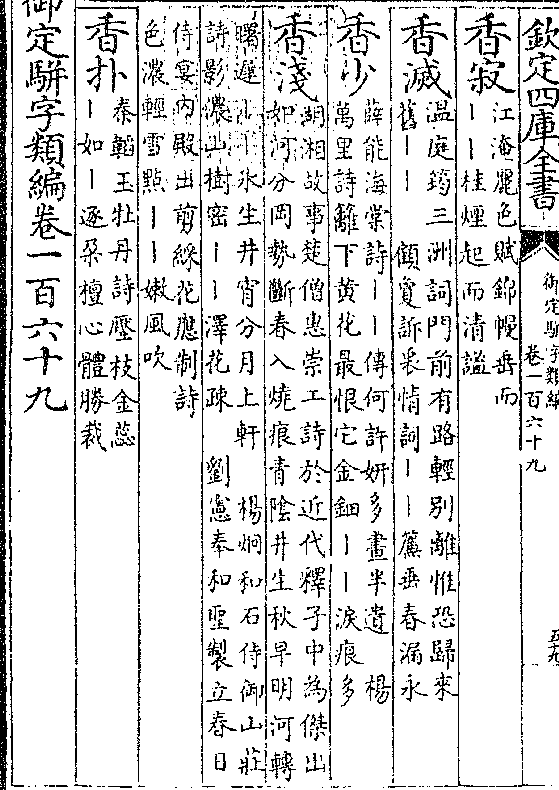 欽定四庫全書
御定駢字類編
卷一百六十九
五九
香寂
江淹麗色賦錦幔垂而
丨丨桂煙起而清謐
香滅
温庭筠三洲詞門前有路輕別離惟恐歸來
舊丨丨 顧敻訴衷情詞丨丨簾垂春漏永
香少
薛能海棠詩丨丨傳何許妍多畫半遺 楊
萬里詩籬下黄花最恨它金鈿丨丨淚痕多
香淺
湖湘故事楚僧惠崇工詩於近代釋子中為傑出
如河分岡勢斷春入燒痕青陰井生秋早明河轉
曙遲 丨氷生井宵分月上軒 楊炯和石侍御山莊
詩影濃山樹密丨丨澤花疎 劉憲奉和聖製立春日
侍宴内殿出剪綵花應制詩
色濃輕雪點丨丨嫩風吹
香扑
秦韜玉牡丹詩壓枝金蕊
丨如丨逐朶檀心體勝裁
御定駢字類編卷一百六十九